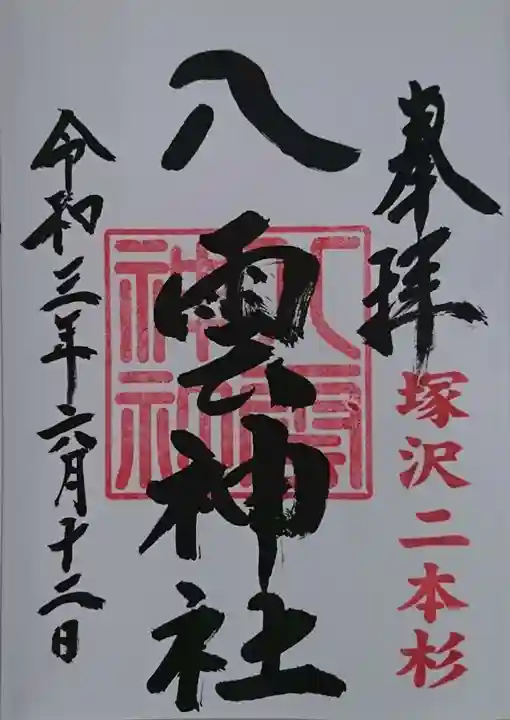 奉拝
塚沢二本杉
八雲神社
八雲神社
令和三年六月十二日